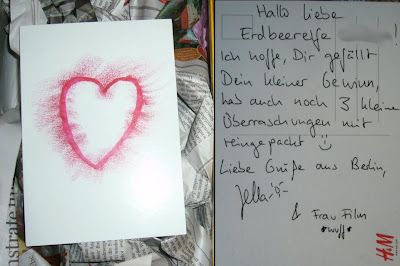 Hallo liebe
Erdbeerelfe !
Ich hoffe, Dir gefällt
Dein kleiner Gewinn,
hab auch noch 3 kleine
Überraschungen mit
reingepackt
Liebe Grüße aus Berlin,
Jella
& Frau Film
*wuff*
H&M